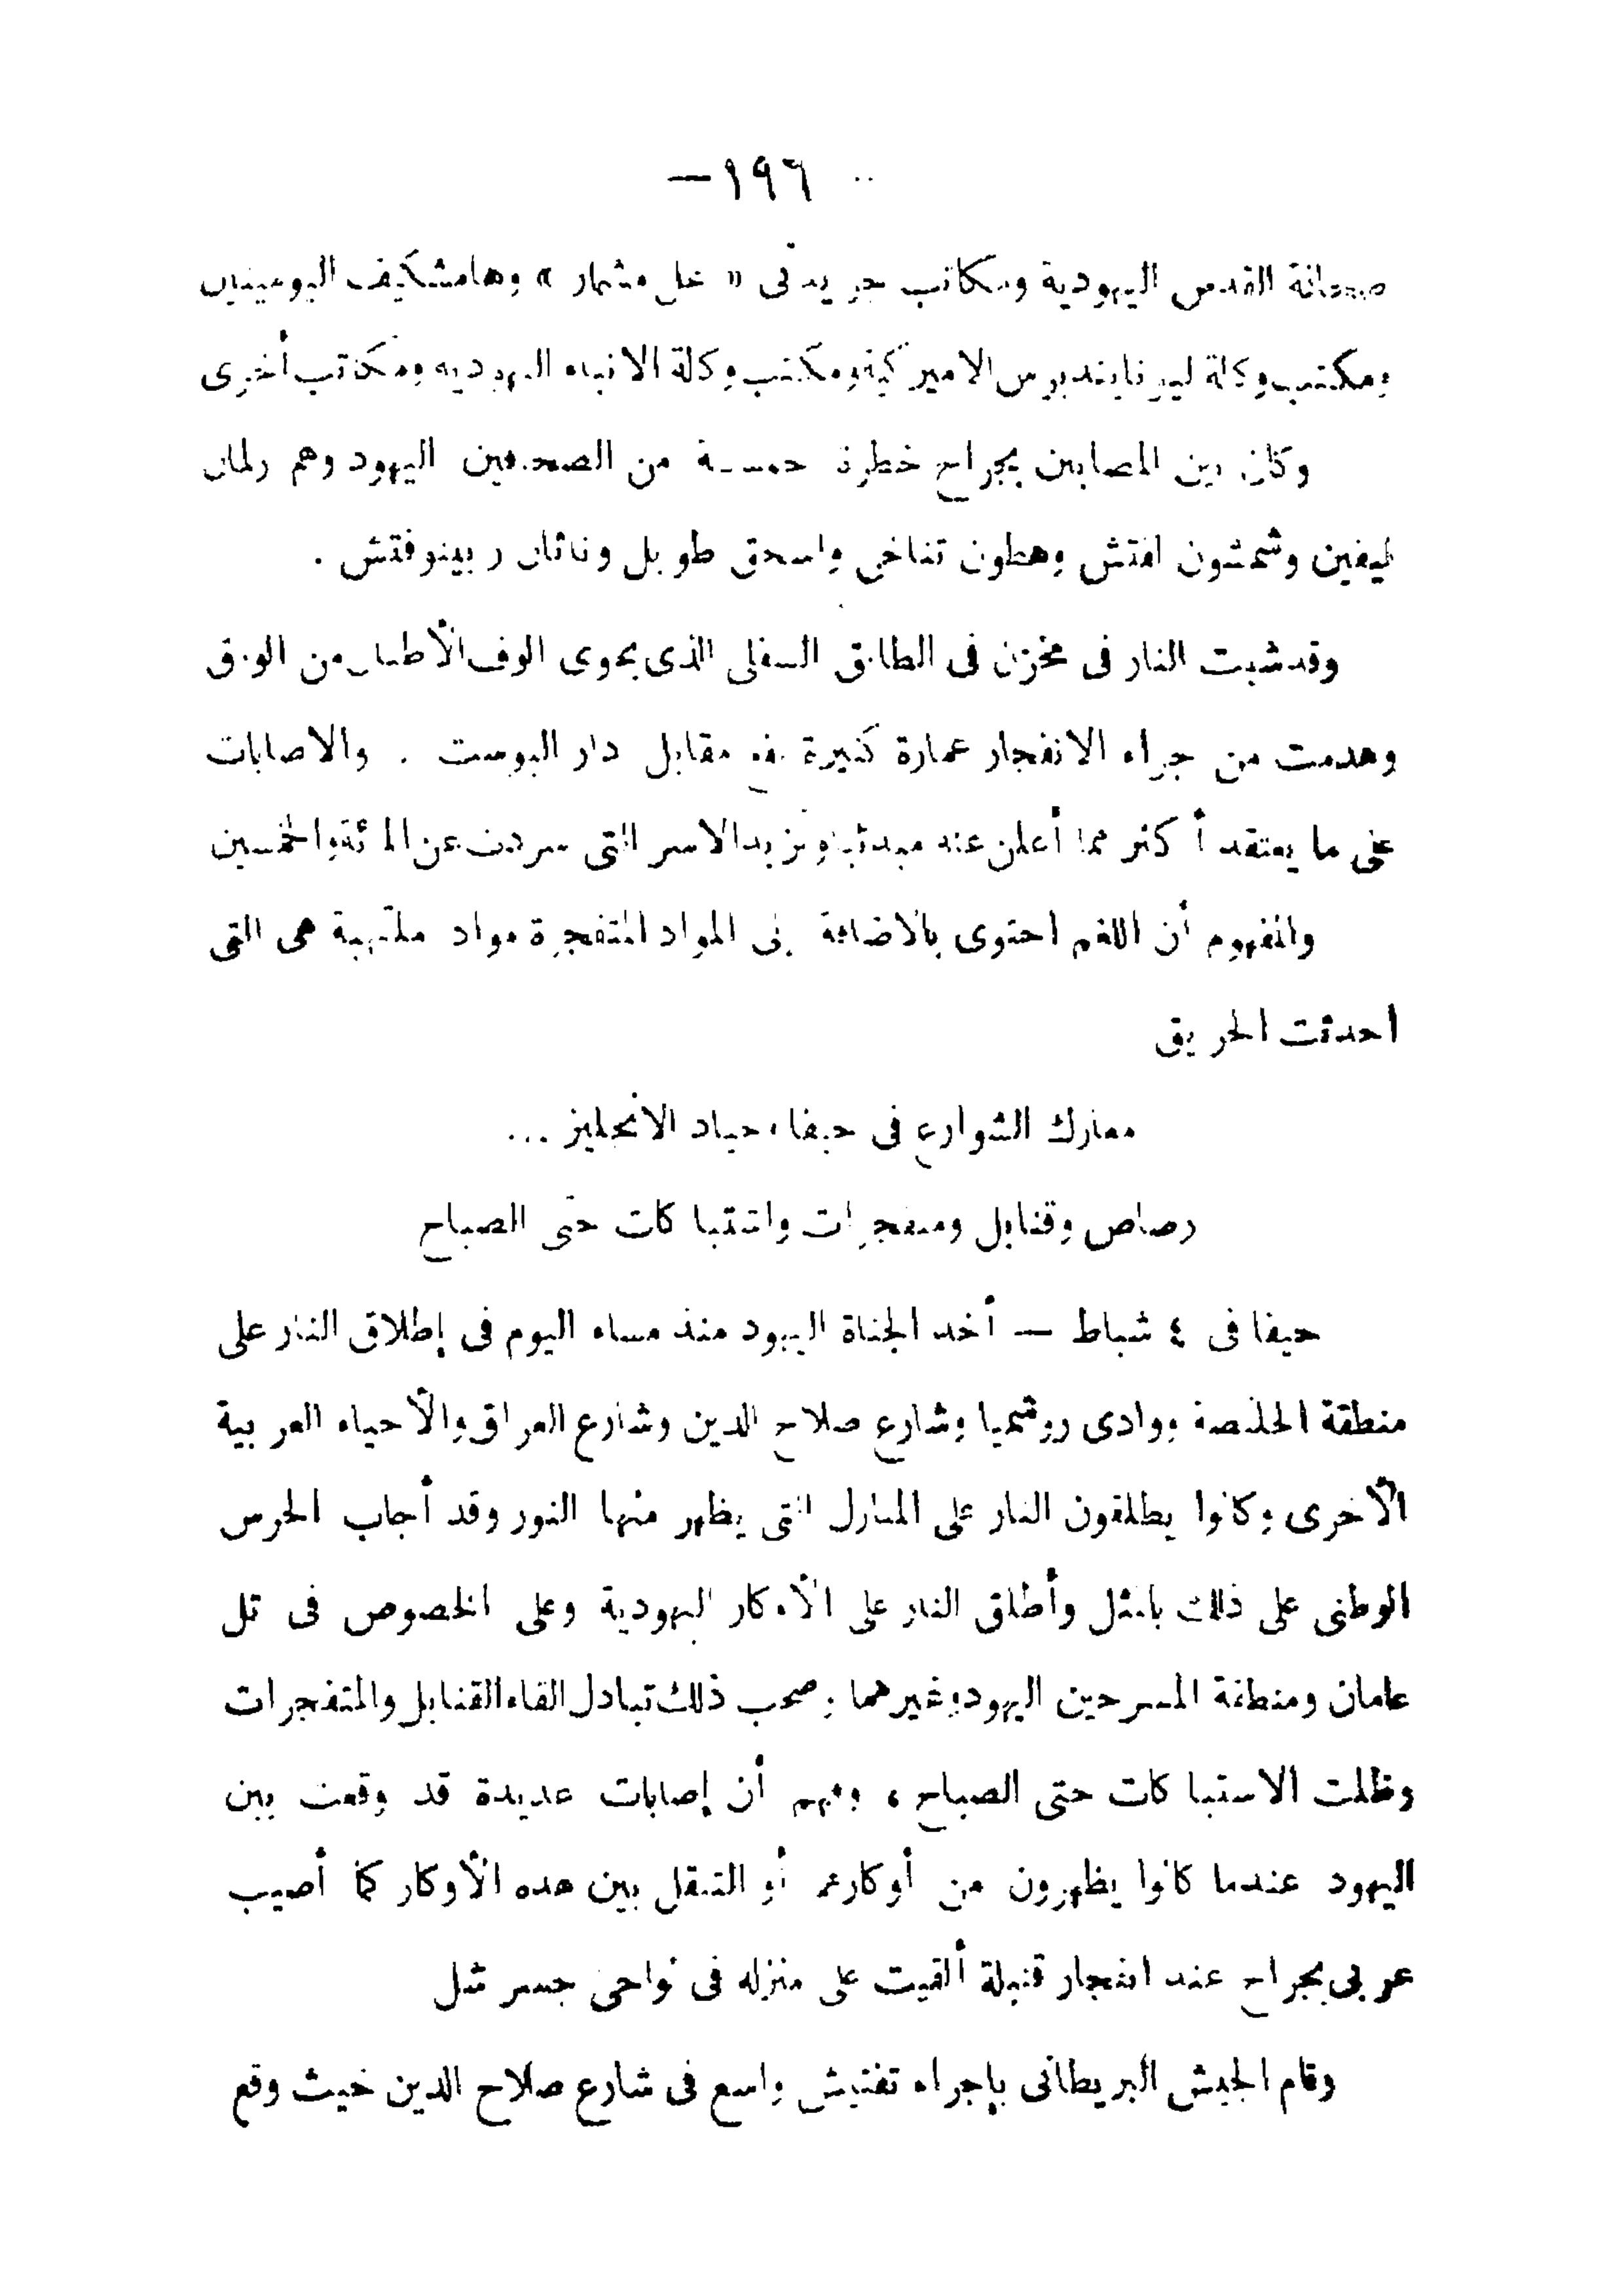 — ١٩٦ —
صحافة القدس اليهودية ومكاتب جريدتى « عل مشمار » وهامشكيف اليوميتين
ومكتب وكالة ليونايتد برس الاميركية ومكتب وكالة الانباء اليهودية ومكاتب أخرى
وكان بين المصابين بجراح خطرة خمسة من الصحفيين اليهود وهم
ليفين وشمشون افتش وهطون تناخى واسحق طويل وناثان ربينوفتش .
وقد شبت النار فى مخزن فى الطابق السفلى الذى يحوى الوف الأطنان من الورق
وهدمت من جراء الانفجار عمارة كبيرة تقع مقابل دار البوست . والاصابات
على ما يعتقد أكثر مما أعلن عنه مبدئيا وتزيد الاسر التى شردت عن المائة والخمسين
والمفهوم أن اللغم احتوى بالاضافة الى المواد المتفجرة مواد ملتهبة هى التى
احدثت الحريق
معارك الشوارع فى حيفا ، حياد الانجليز ...
رصاص وقنابل ومتفجرات واشتباكات حتى الصباح
حيفا فى ٤ شباط — أخذ الجناة اليهود منذ مساء اليوم فى إطلاق النار على
منطقة الحليصة ووادى روشميا وشارع صلاح الدين وشارع العراق والأحياء العربية
الأخرى وكانوا يطلقون النار على المنازل التى يظهر منها النور وقد أجاب الحرس
الوطنى على ذلك بالمثل وأطلق النار على الأوكار اليهودية وعلى الخصوص فى تل
عامان ومنطقة المسرحين اليهود وغيرهما وصحب ذلك تبادل القاء القنابل والمتفجرات
وظلت الاستباكات حتى الصباح ، وفهم أن إصابات عديدة قد وقعت بين
اليهود عندما كانوا يظهرون من أوكارهم أو التنقل بين هذه الأوكار كما أصيب
عربى بجراح عند انفجار قنبلة ألقيت على منزله فى نواحى جسر شل
وقام الجيش البريطانى بإجراء تفتيش واسع فى شارع صلاح الدين حيث وقع